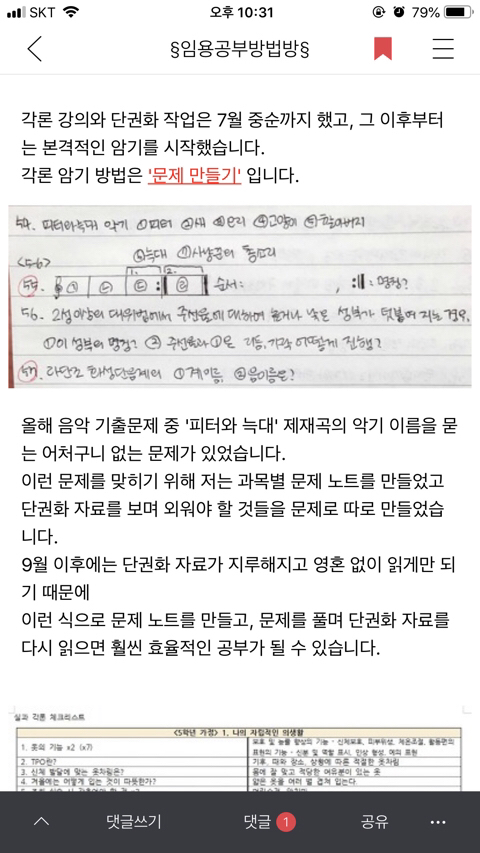 SKT 오후 10:31 79%
§임용공부방법방§
각론 강의와 단권화 작업은 7월 중순까지 했고, 그 이후부터
는 본격적인 암기를 시작했습니다.
각론 암기 방법은 '문제 만들기' 입니다.
54. 피터와늑대 악기 ①피터 ②새 ③오리 ④고양이 ⑤할아버지
⑥늑대 ⑦사냥꾼의 총소리
<5-6>
1. 2.
55. ㉠ ㉡ ㉢ ㉣ 순서: , :‖: 명칭?
56. 2성이상의 대위법에서 주선율에 대하여 높거나 낮은 성부가 덧붙여 지는 경우,
①이 성부의 명칭? ② 주선율과 ①은 리듬, 가락 어떻게 진행?
57. 라단조 화성단음계의 ①계이름, ②음이름은?
올해 음악 기출문제 중 '피터와 늑대' 제재곡의 악기 이름을 묻
는 어처구니 없는 문제가 있었습니다.
이런 문제를 맞히기 위해 저는 과목별 문제 노트를 만들었고
단권화 자료를 보며 외워야 할 것들을 문제로 따로 만들었습
니다.
9월 이후에는 단권화 자료가 지루해지고 영혼 없이 읽게만 되
기 때문에
이런 식으로 문제 노트를 만들고, 문제를 풀며 단권화 자료를
다시 읽으면 훨씬 효율적인 공부가 될 수 있습니다.
실과 각론 체크리스트
<5학년 가정> 1. 나의 자립적인 의생활
1. 옷의 기능 x2 (x7)
보호 및 능률 향상의 기능 - 신체보호, 피부위생, 체온조절, 활동편의
표현의 기능 - 신분 및 역할 표시, 인상 형성, 예의 표현
2. TPO란? 기후, 때와 장소, 상황에 따른 적절한 옷차림
3. 신체 발달에 맞는 옷차림은? 몸에 잘 맞고 적당한 여유분이 있는 옷
4. 겨울에는 어떻게 입는 것이 따뜻한가? 얇은 옷을 여러 벌 겹쳐 입는다.
댓글쓰기 댓글 1 공유